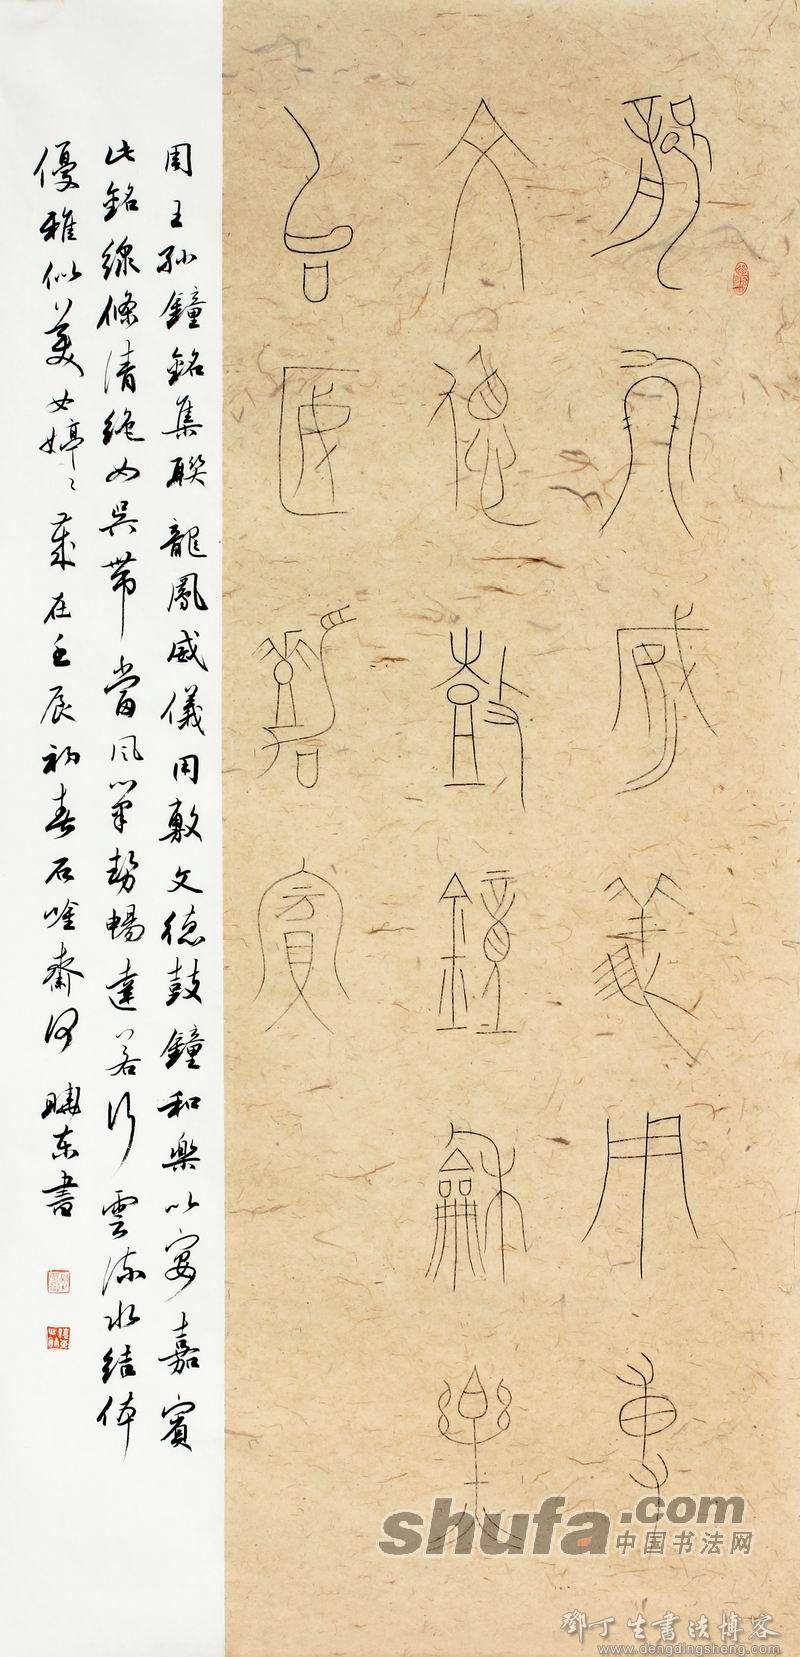 龍鳳威義用尃
文德鼓鐘龢樂
台匽嘉賓
周王孙鐘銘集聯龍鳳威儀用敷文德鼓鐘和樂以宴嘉賓
此銘線條清絶如吳帶當風筆勢暢達若行雲流水結体
優雅似美女婷〻歲在壬辰初春石唫齋何东書
shufa.com
中国书法网
鄧丁生書法博客
www.dengdingsheng.com